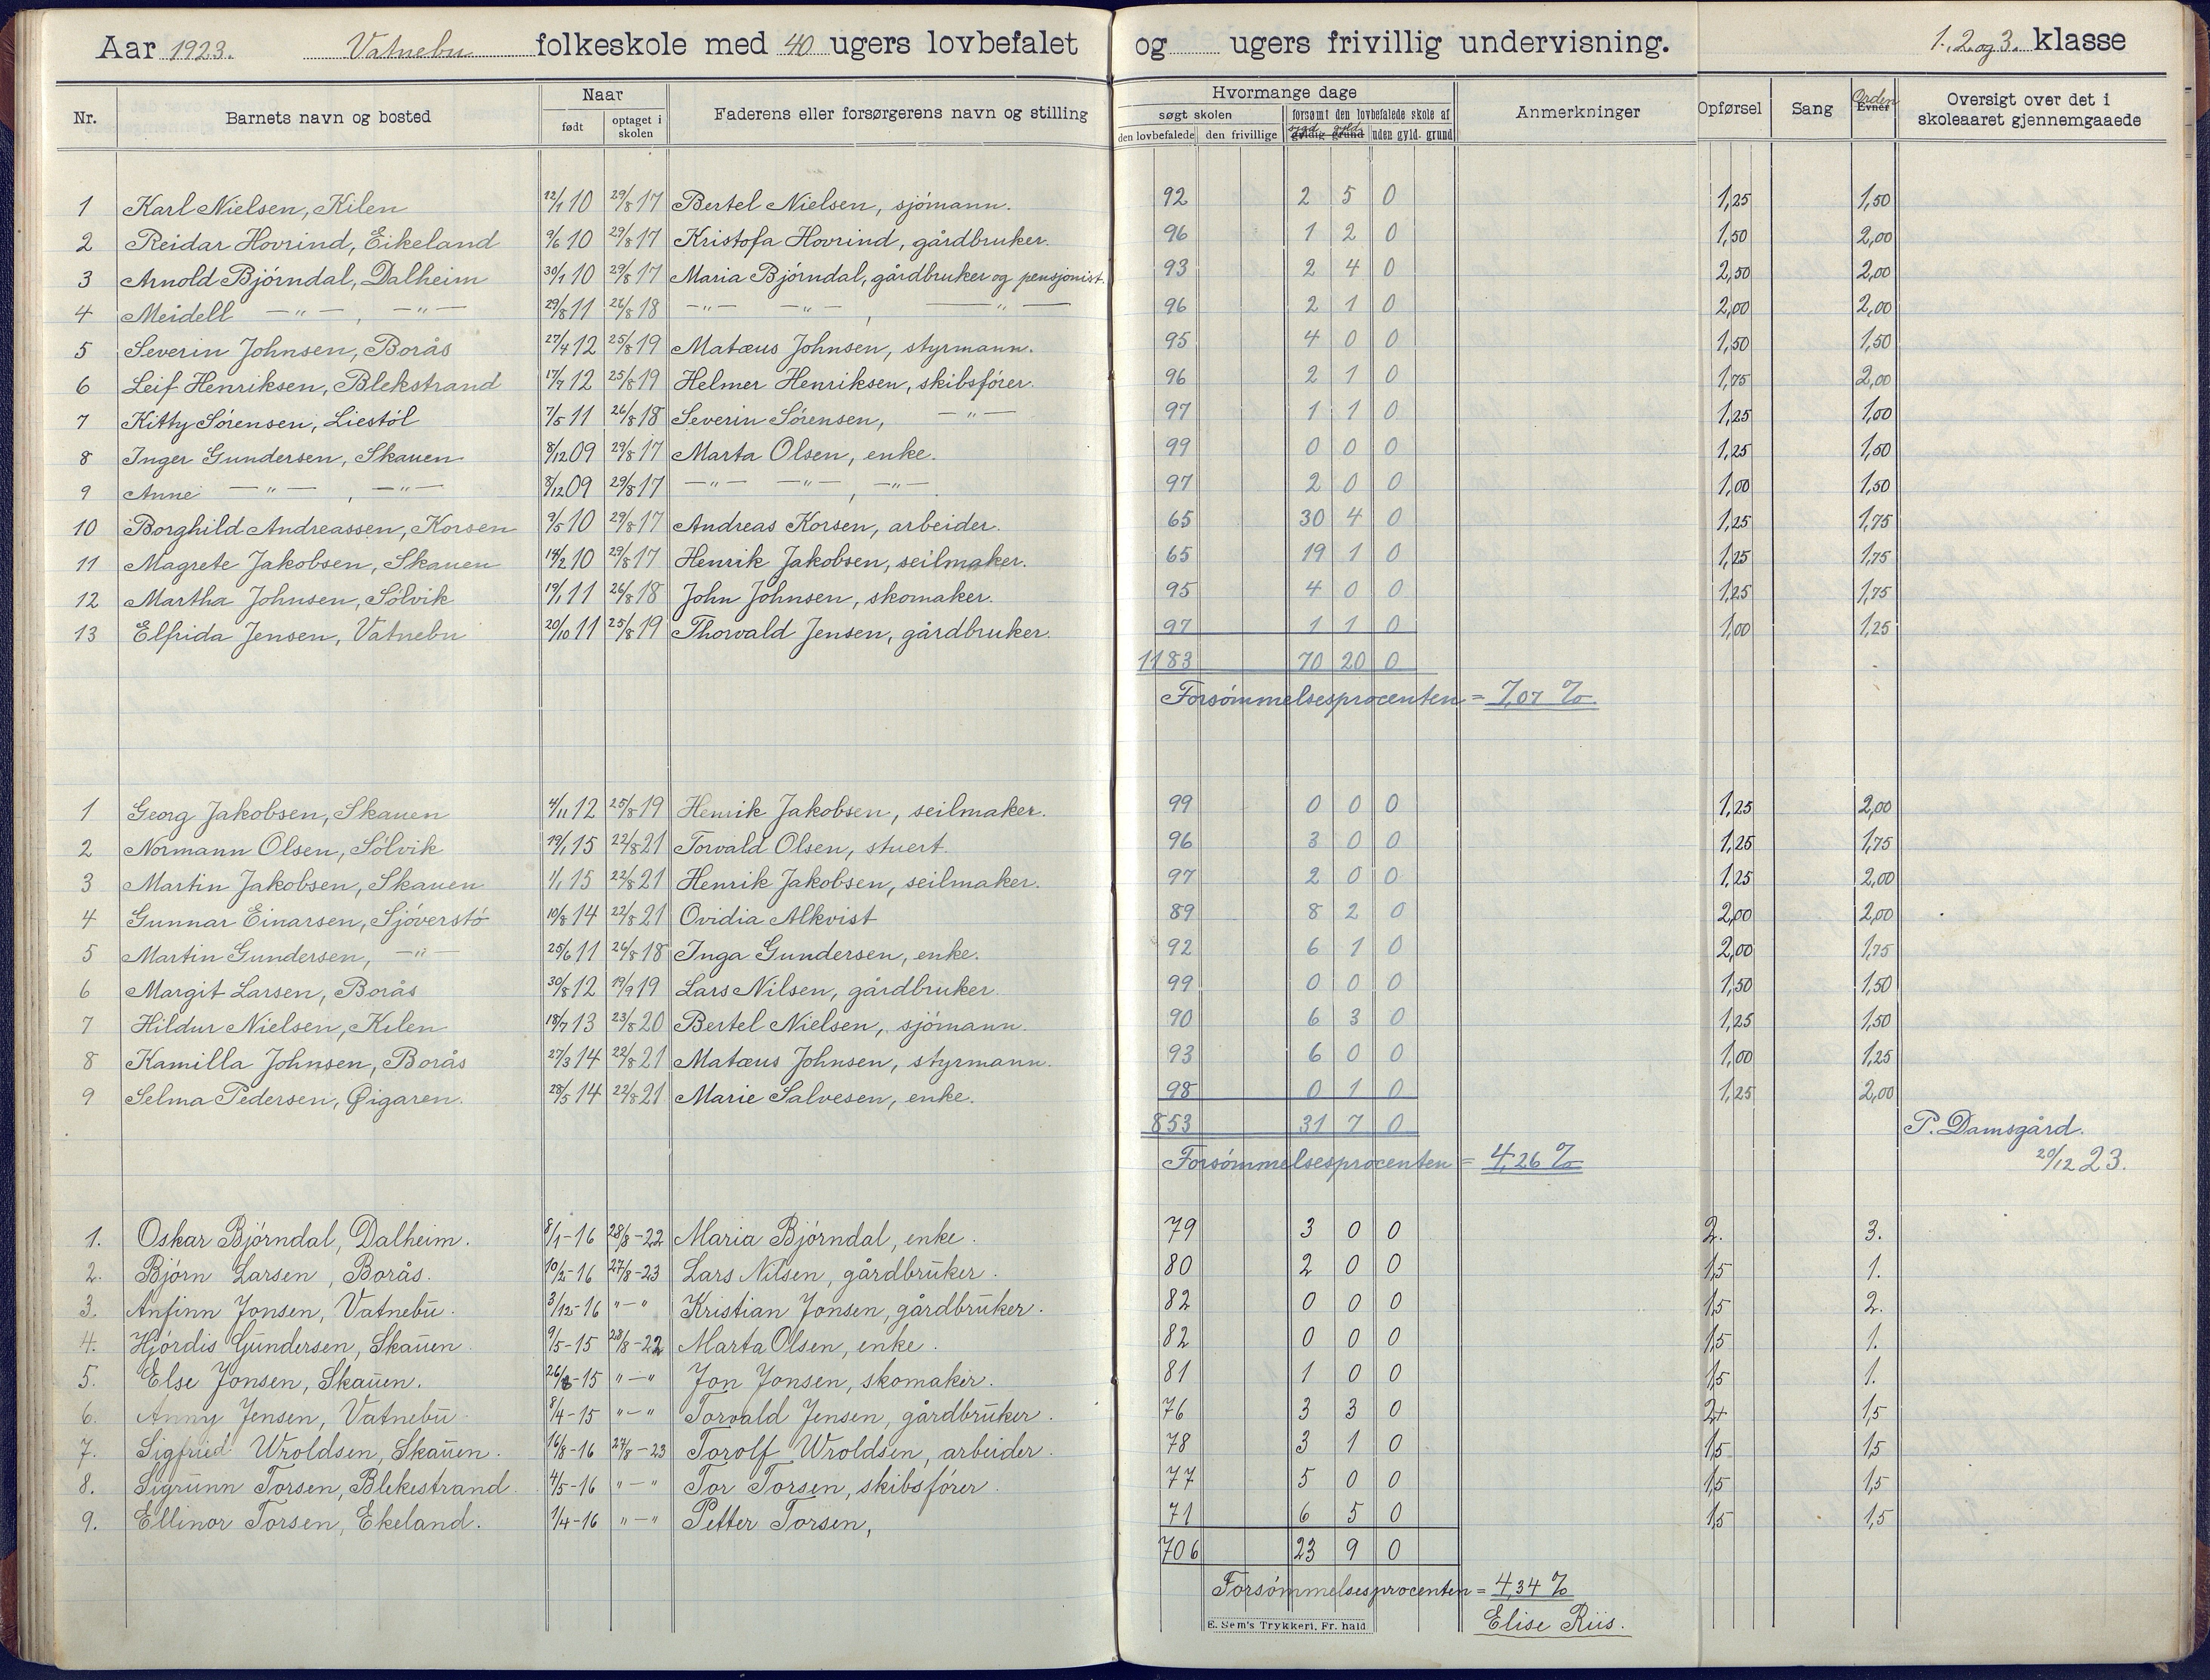 Aar 1923. Vatnebu folkeskole med 40 ugers lovbefalet og ugers frivillig undervisning. 1. 2. og 3. klasse
Nr. Barnets navn og bosted Naar født optaget i skolen Faderens eller forsørgerens navn og stilling Hvormange dage søgt skolen den lovbefalede den frivillige forsømt den lovbefalede skole af gyldig grund sygd. gyld. uden gyld. grund Anmerkninger Opførsel Sang Evner Orden Oversigt over det i skoleaaret gjennemgaaede
1 Karl Nielsen, Kilen 22/1 10 29/8 17 Bertel Nielsen, sjömann. 92 2 5 0 1,25 1,50
2 Reidar Hovrind, Eikeland 9/6 10 29/8 17 Kristofa Hovrind, gårdbruker. 96 1 2 0 1,50 2,00
3 Arnold Björndal, Dalheim 30/1 10 29/8 17 Maria Björndal, gårdbruker og pensjonist. 93 2 4 0 2,50 2,00
4 Meidell —"— , —"— 29/8 11 26/8 18 —"— —"— , —"— 96 2 1 0 2,00 2,00
5 Severin Johnsen, Borås 27/4 12 25/8 19 Matæus Johnsen, styrmann. 95 4 0 0 1,50 1,50
6 Leif Henriksen, Blekstrand 17/7 12 25/8 19 Helmer Henriksen, skibsförer. 96 2 1 0 1,75 2,00
7 Kitty Sörensen, Liestöl 7/5 11 26/8 18 Severin Sörensen, —"— 97 1 1 0 1,25 1,00
8 Inger Gundersen, Skauen 8/12 09 29/8 17 Marta Olsen, enke. 99 0 0 0 1,25 1,50
9 Anne —"— , —"— 8/12 09 29/8 17 —"— —"— , —"— . 97 2 0 0 1,00 1,50
10 Borghild Andreassen, Korsen 9/5 10 29/8 17 Andreas Korsen, arbeider. 65 30 4 0 1,25 1,75
11 Magrete Jakobsen, Skauen 14/2 10 29/8 17 Henrik Jakobsen, seilmaker. 65 19 1 0 1,25 1,75
12 Martha Johnsen, Sölvik 19/1 11 26/8 18 John Johnsen, skomaker. 95 4 0 0 1,25 1,75
13 Elfrida Jensen, Vatnebu 20/10 11 25/8 19 Thorvald Jensen, gårdbruker. 97 1 1 0 1,00 1,25
1183 70 20 0
Forsömmelsesprocenten = 7,07 %
1 Georg Jakobsen, Skauen 4/11 12 25/8 19 Henrik Jakobsen, seilmaker. 99 0 0 0 1,25 2,00
2 Normann Olsen, Sölvik 19/1 15 22/8 21 Torvald Olsen, stuert. 96 3 0 0 1,25 1,75
3 Martin Jakobsen, Skauen 1/1 15 22/8 21 Henrik Jakobsen, seilmaker. 97 2 0 0 1,25 2,00
4 Gunnar Einarsen, Sjöverstö 10/8 14 22/8 21 Ovidia Alkvist 89 8 2 0 2,00 2,00
5 Martin Gundersen, —"— 25/6 11 26/8 18 Inga Gundersen, enke. 92 6 1 0 2,00 1,75
6 Margit Larsen, Borås 30/8 12 19/9 19 Lars Nilsen, gårdbruker. 99 0 0 0 1,50 1,50
7 Hildur Nielsen, Kilen 18/7 13 23/8 20 Bertel Nielsen, sjömann. 90 6 3 0 1,25 1,50
8 Kamilla Johnsen, Borås 27/3 14 22/8 21 Matæus Johnsen, styrmann. 93 6 0 0 1,00 1,25
9 Selma Pedersen, Øigaren. 28/5 14 22/8 21 Marie Salvesen, enke. 98 0 1 0 1,25 2,00
853 31 7 0 P. Damsgård.
Forsömmelsesprocenten = 4,26 % 20/12 23.
1. Oskar Björndal, Dalheim. 8/1-16 28/8-22 Maria Björndal, enke. 79 3 0 0 2. 3.
2. Björn Larsen, Borås. 10/2-16 27/8-23 Lars Nilsen, gårdbrüker. 80 2 0 0 1,5 1.
3. Anfinn Jonsen, Vatnebü. 3/12-16 "—" Kristian Jonsen, gårdbrüker. 82 0 0 0 1,5 2.
4. Hjördis Gündersen, Skaüen 9/5-15 28/8-22 Marta Olsen, enke. 82 0 0 0 1,5 1.
5. Else Jonsen, Skaüen. 26/8-15 "—" Jon Jonsen, skomaker. 81 1 0 0 1,5 1.
6. Anny Jensen, Vatnebü 8/4-15 "—" Torvald Jensen, gårdbrüker. 76 3 3 0 2+ 1,5
7. Sigfried Wroldsen, Skaüen. 16/8-16 27/8-23 Torolf Wroldsen, arbeider. 78 3 1 0 1,5 1,5
8. Sigrünn Torsen, Blekestrand. 4/5-16 "—" Tor Torsen, skibsförer. 77 5 0 0 1,5 1,5
9. Ellinor Torsen, Ekeland. 1/4-16 "—" Petter Torsen, 71 6 5 0 1,5 1,5
706 23 9 0
Forsömmelsesprocenten = 4,34 %
E. Sem's Trykkeri, Fr. hald Elise Riis.